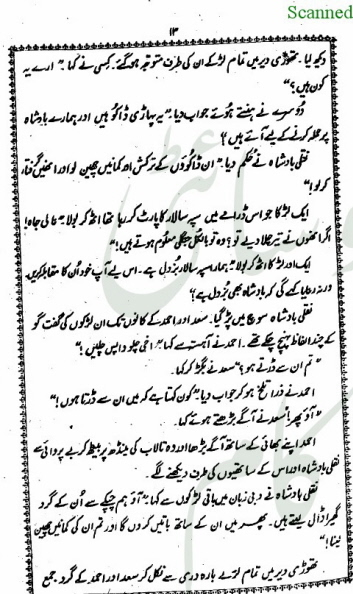 Scanned
۱۳
دیکھ لیا۔ تھوڑی دیر میں تمام لڑکے ان کی طرف متوجہ ہو گئے۔ کسی نے کہا۔ "ارے یہ
کون ہیں؟"
دُوسرے نے ہنستے ہوئے جواب دیا۔ "یہ پہاڑی ڈاکو ہیں اور ہمارے بادشاہ
پر حملہ کرنے کے لیے آئے ہیں"
نقلی بادشاہ نے حُکم دیا۔ "ان ڈاکوؤں کے ترکش اور کمانیں چھین لو اور انھیں گرفتار
کر لو!"
ایک لڑکا جو اس ڈرامے میں سپہ سالار کا پارٹ کر رہا تھا اُٹھ کر بولا "عالی جاہ!
اگر انھوں نے تیر چلا دیے تو؟ وہ تو بالکل جنگلی معلوم ہوتے ہیں!"
ایک اور لڑکا اُٹھ کر بولا "ہمارا سپہ سالار بُزدل ہے۔ اس لیے آپ خود اُن کا مقابلہ کریں
ورنہ رعایا کہے گی کہ بادشاہ بھی بُزدل ہے؟"
نقلی بادشاہ سوچ میں پڑ گیا۔ سعد اور احمد کے کانوں تک ان لڑکوں کی گفت گو
کے چند الفاظ پہنچ چکے تھے۔ احمد نے آہستہ سے کہا "اخی چلو واپس چلیں!"
"تم ان سے ڈرتے ہو؟" سعد نے بگڑ کر کہا۔
احمد نے ذرا تلخ ہو کر جواب دیا "کون کہتا ہے کہ میں ان سے ڈرتا ہوں!"
"آؤ پھر!" سعد نے آگے بڑھتے ہوئے کہا۔
احمد اپنے بھائی کے ساتھ آگے بڑھا اور وہ تالاب کی مینڈھ پر بیٹھ کر بے پروائی سے
نقلی بادشاہ اور اس کے ساتھیوں کی طرف دیکھنے لگے۔
نقلی بادشاہ نے دبی زبان میں باقی لڑکوں سے کہا "آؤ ہم چپکے سے اُن کے گرد
گھیرا ڈال لیتے ہیں۔ پھر میں ان کے ساتھ باتیں کروں گا اور تم ان کی کمانیں چھین
لینا!"
تھوڑی دیر میں تمام لڑکے بارہ دری سے نکل کر سعد اور احمد کے گرد جمع